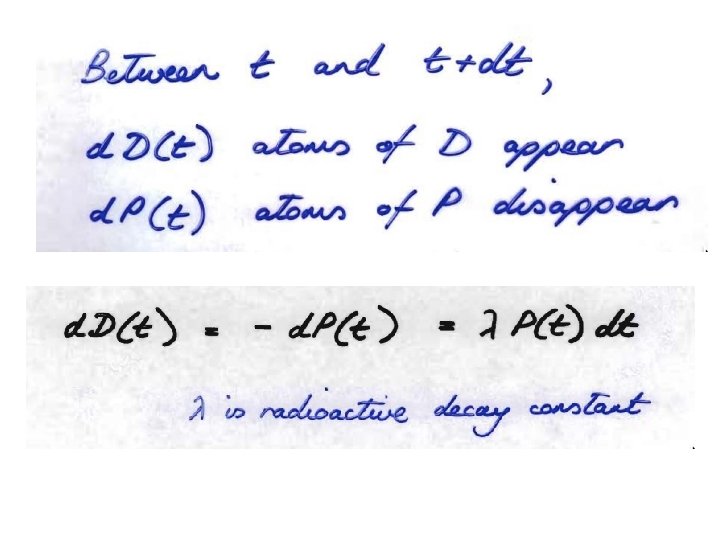 Between t and t+dt,
dD(t) atoms of D appear
dP(t) atoms of P disappear
dD(t) = - dP(t) = λ P(t) dt
λ is radioactive decay constant